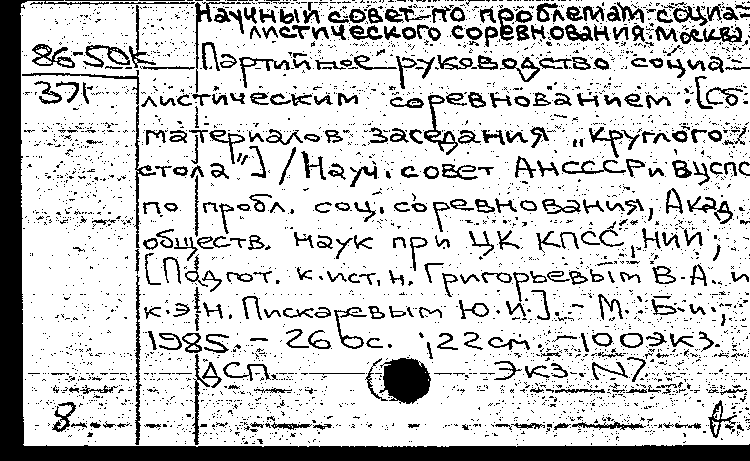 Научный совет по проблемам социа-
листического соревнования. Москва.
86-50к Партийное руководство социа-
371 листическим соревнованием: [Сб.
материалов заседания „круглого
стола"] / Науч. совет АН СССР и ВЦСПС
по пробл. соц. соревнования, Акад.
обществ. наук при ЦК КПСС, НИИ;
[Подгот. к.ист.н. Григорьевым В.А. и
к.э.н. Пискаревым Ю.И.]. - М.: Б.и.,
1985. - 260с. ; 22см. - 100экз.
ДСП. Экз. N7
8